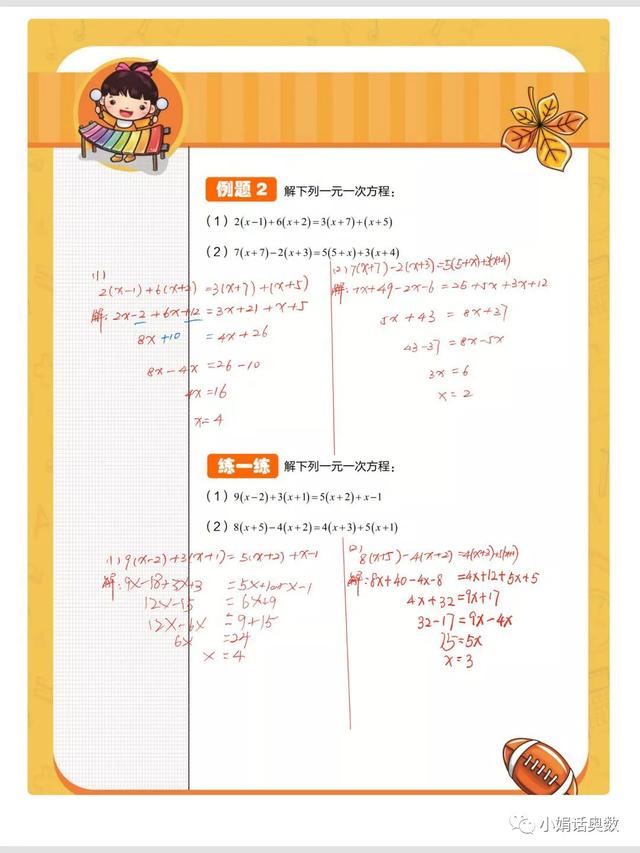 例题 2 解下列一元一次方程：
（1）2(x−1)+6(x+2)=3(x+7)+(x+5)
（2）7(x+7)−2(x+3)=5(5+x)+3(x+4)
(1)
2(x−1)+6(x+2)=3(x+7)+(x+5)
解: 2x−2+6x+12=3x+21+x+5
8x+10=4x+26
8x−4x=26−10
4x=16
x=4
(2) 7(x+7)−2(x+3)=5(5+x)+3(x+4)
解: 7x+49−2x−6=25+5x+3x+12
5x+43=8x+37
43−37=8x−5x
3x=6
x=2
练一练 解下列一元一次方程：
（1）9(x−2)+3(x+1)=5(x+2)+x−1
（2）8(x+5)−4(x+2)=4(x+3)+5(x+1)
(1) 9(x−2)+3(x+1)=5(x+2)+x−1
解: 9x−18+3x+3=5x+10+x−1
12x−15=6x+9
12x−6x=9+15
6x=24
x=4
(2)
8(x+5)−4(x+2)=4(x+3)+5(x+1)
解: 8x+40−4x−8=4x+12+5x+5
4x+32=9x+17
32−17=9x−4x
15=5x
x=3
小娟话奥数